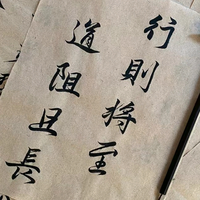 行則将至
道阻且長